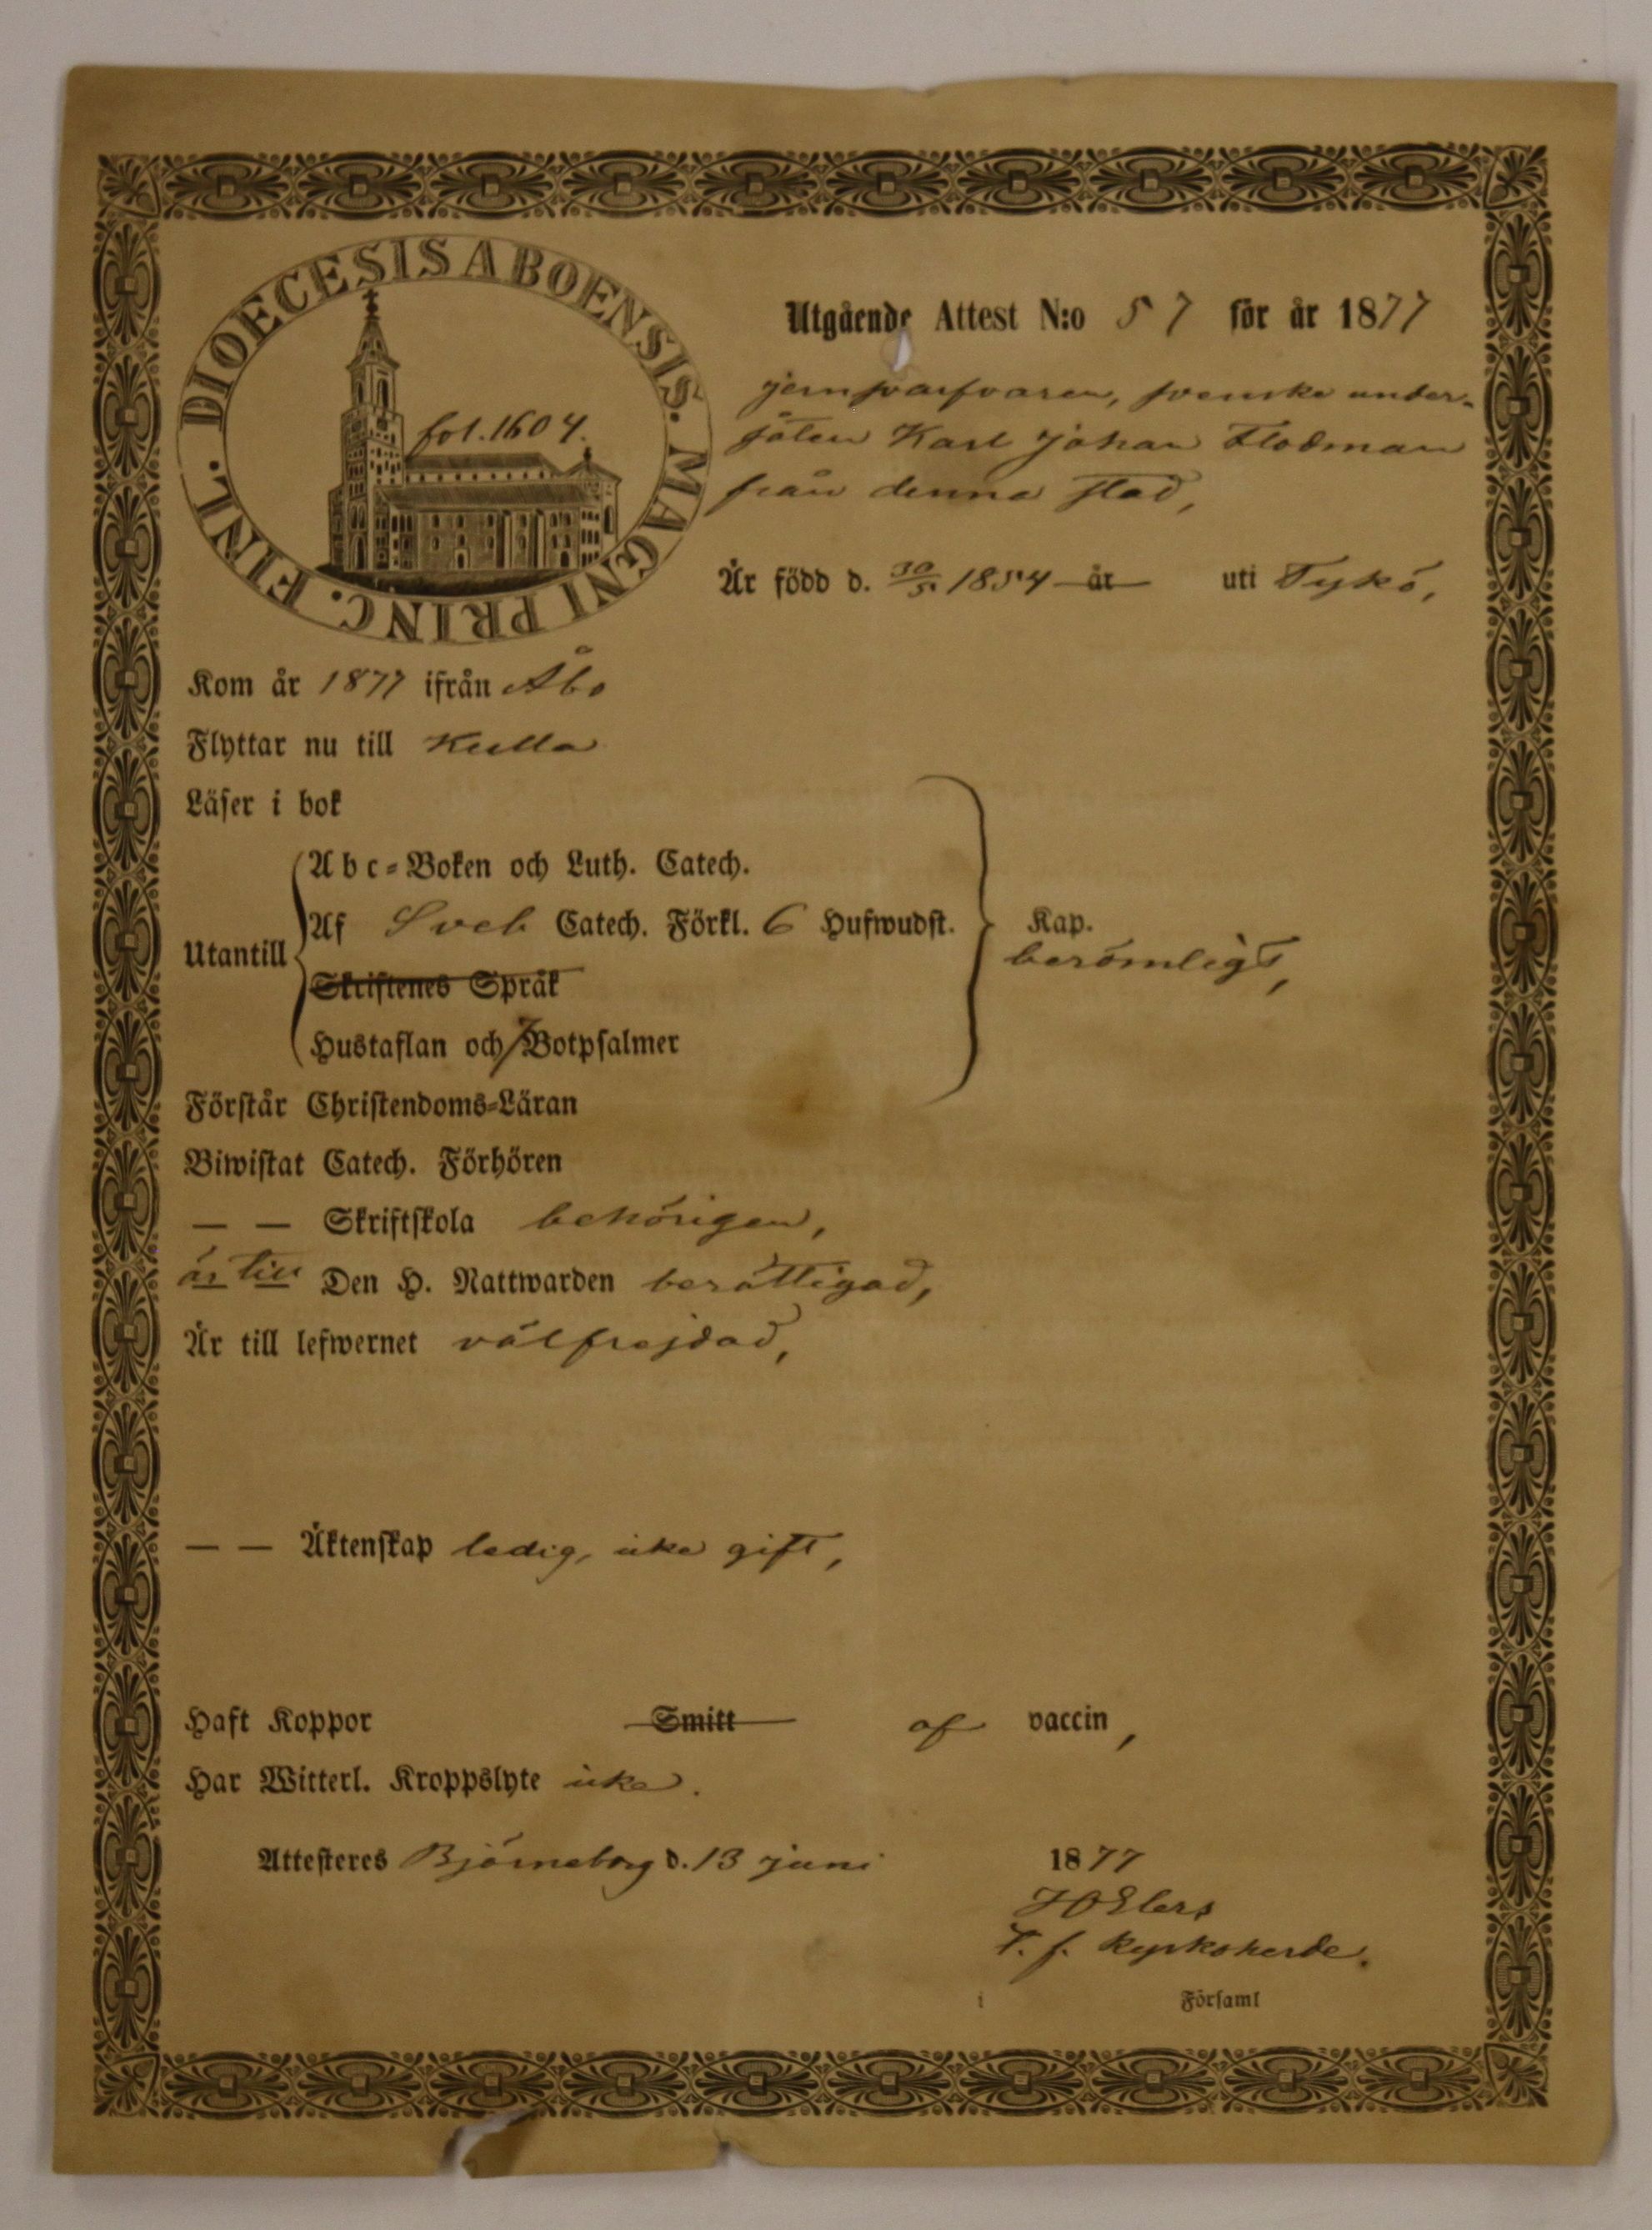 DIOECESIS ABOENSIS. MAGNI PRINC. FINL.
fol. 1604.
Utgående Attest N:o 57 för år 1877
jernsvarfvaren, svenske under-
såten Karl Johan Flodman
från denna stad,
Är född d. 30/5 1854 år uti Tykö,
Kom år 1877 ifrån Åbo
Flyttar nu till Kulla
Läser i bok
Abc-Boken och Luth. Catech.
Af Sveb Catech. Förkl. 6 Hufwudst. Kap.
Utantill berömligt,
Skriftenes Språk
Hustaflan och 7 Botpsalmer
Förstår Christendoms-Läran
Biwistat Catech. Förhören
— — Skriftskola behörigen,
är till Den H. Nattwarden berättigad,
Är till lefwernet välfrejdad,
— — Äktenskap ledig, icke gift,
Haft Koppor Smitt af vaccin,
Har Witterl. Kroppslyte icke.
Attesteres Björneborg d. 13 juni 1877
Elers
T. f. Kyrkoherde.
i Församl